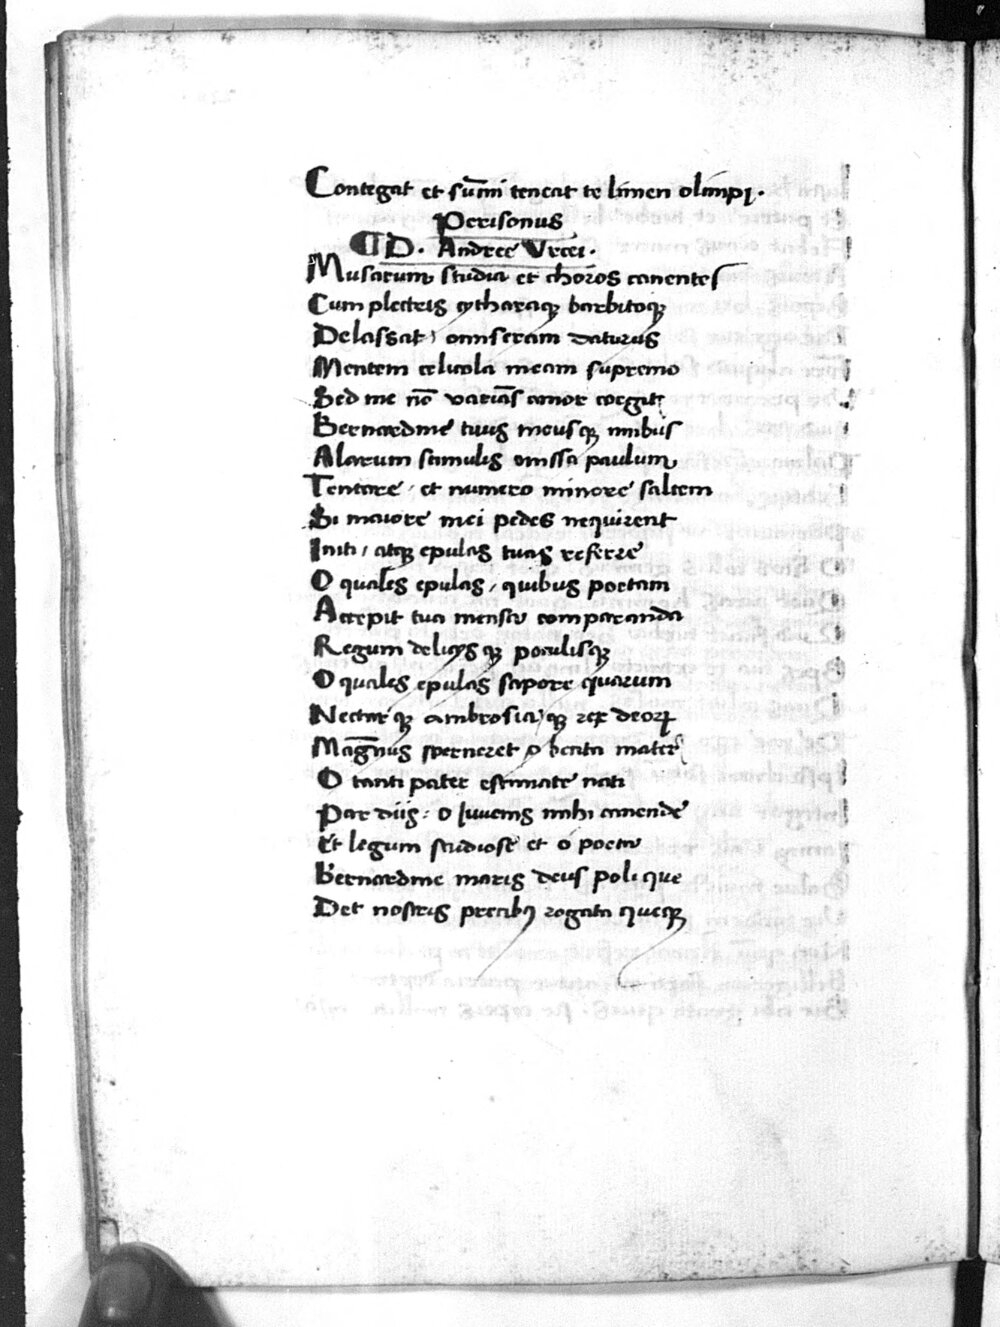 Contegat et sūmi teneat te limen olimpi.
Perisonus
¶ D. Andree Vrcei.
Musarum studia et choros canentes
Cum plectris cytharaqꝫ barbitoqꝫ
Delassat, omiseram daturus
Mentem celicola meam supremo
Sed me nō varians amor coegit
Bernardine tuus meusqꝫ nimbus
Alarum stimulis omissa paulum
Tentare, et numero minore saltem
Si maiore mei pedes nequirent
Initi, atqꝫ epulas tuas referre
O quales epulas, quibus poetam
Accepit tua mensa comparanda
Regum delicys qꝫ poculisqꝫ
O quales epulas sapore quarum
Nectar qꝫ ambrosia qꝫ rex deoꝝ
Magnus sperneret o beata mater
O tanti pater estimate nati
Par diis: o iuuenis mihi canende
Et legum studiose et o poeta
Bernardine maris deus poli que
Det nostris precibꝰ rogata queqꝫ